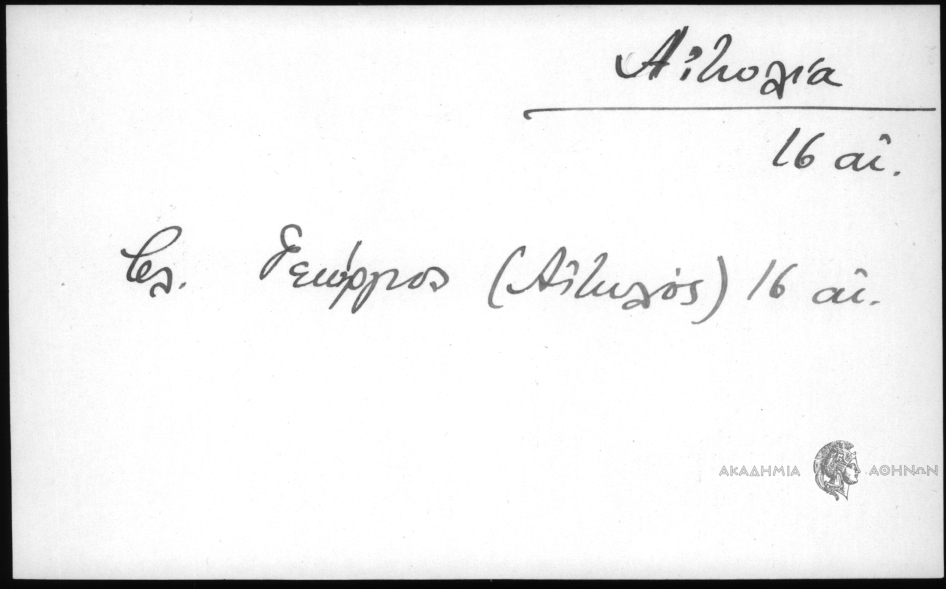 Αἰτωλία
16 αἰ.
βλ. Γεώργιος (Αἰτωλός) 16 αἰ.
ΑΚΑΔΗΜΙΑ ΑΘΗΝΩΝ